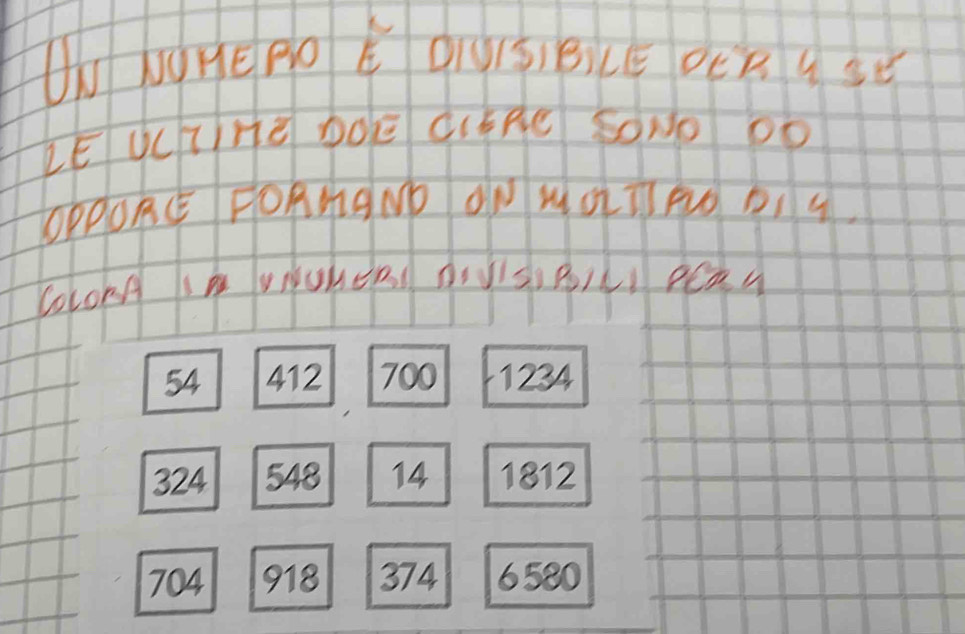 UN NUMERO È DIVISIBILE PER 4 SE
LE ULTIME DUE CIFRE SONO 00
OPPURE FORMANO UN MULTIPLO DI 4.
COLORA I NUMERI DIVISIBILI PER 4
54 412 700 1234
324 548 14 1812
704 918 374 6580